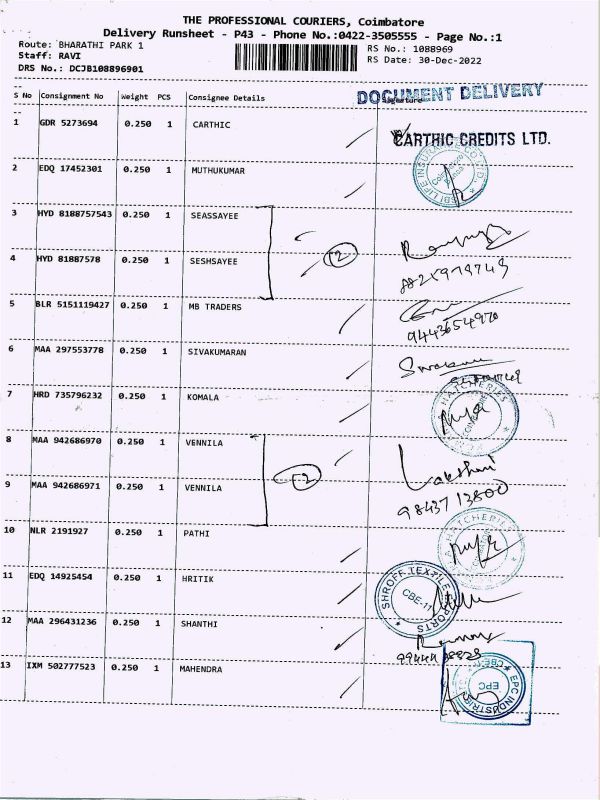 THE PROFESSIONAL COURIERS, Coimbatore
Delivery Runsheet - P43 - Phone No.:0422-3505555 - Page No.:1
Route: BHARATHI PARK 1
RS No.: 1088969
Staff: RAVI
RS Date: 30-Dec-2022
DRS No.: DCJB108896901
S No Consignment No Weight PCS Consignee Details Signature
DOCUMENT DELIVERY
1 GDR 5273694 0.250 1 CARTHIC
CARTHIC CREDITS LTD.
2 EDQ 17452301 0.250 1 MUTHUKUMAR
SBI LIFE INSURANCE CO. LTD.
3 HYD 8188757543 0.250 1 SEASSAYEE
2
4 HYD 81887578 0.250 1 SESHSAYEE
5 BLR 5151119427 0.250 1 MB TRADERS
9443654970
6 MAA 297553778 0.250 1 SIVAKUMARAN
7 HRD 735796232 0.250 1 KOMALA
HATCHERIES
8 MAA 942686970 0.250 1 VENNILA
2
Lakshmi
9 MAA 942686971 0.250 1 VENNILA
9843713800
10 NLR 2191927 0.250 1 PATHI
HATCHERIES
11 EDQ 14925454 0.250 1 HRITIK
SHROFF TEXTILE EXPORTS
CBE-11
12 MAA 296431236 0.250 1 SHANTHI
13 IXM 502777523 0.250 1 MAHENDRA
EPC INDUSTRIES
EPC